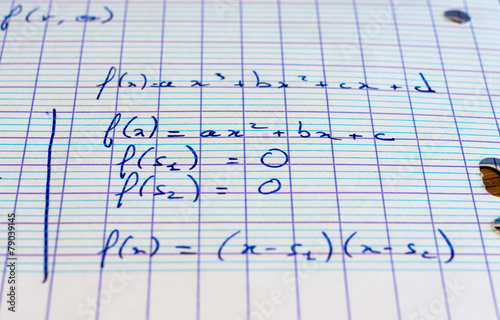 f(x, ∞)
f(x) = a x³ + bx² + cx + d
f(x) = ax² + bx + c
f(s₁) = 0
f(s₂) = 0
f(x) = (x - s₁)(x - s₂)
79039145
Adobe Stock